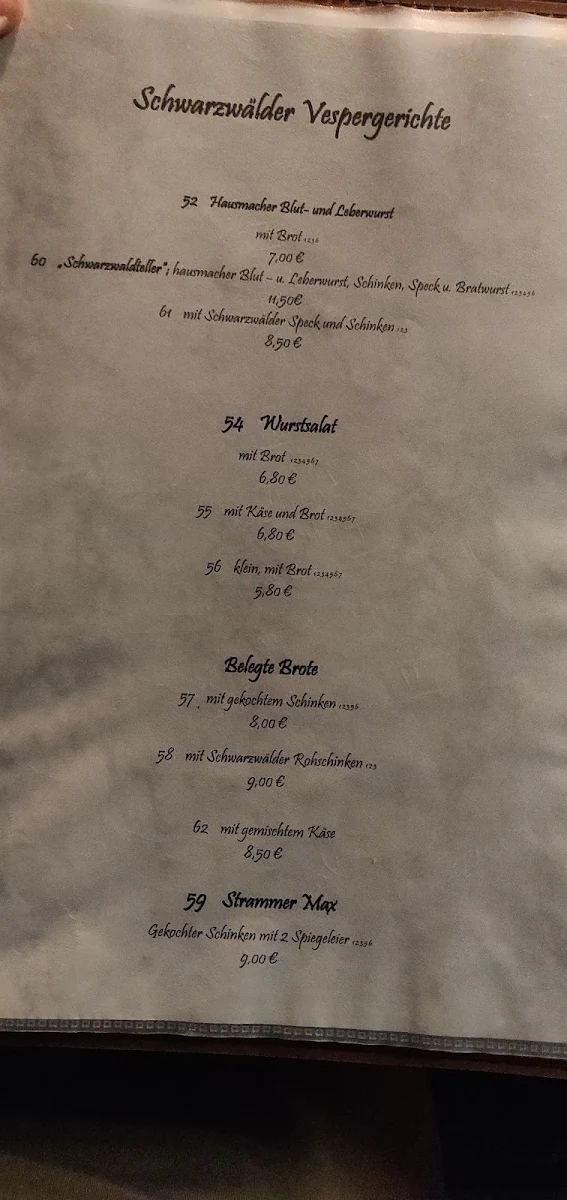 Schwarzwälder Vespergerichte
52 Hausmacher Blut- und Leberwurst
mit Brot 1236
7,00 €
60 „Schwarzwaldteller“; hausmacher Blut – u. Leberwurst, Schinken, Speck u. Bratwurst 123456
11,50€
61 mit Schwarzwälder Speck und Schinken 123
8,50 €
54 Wurstsalat
mit Brot 1234567
6,80 €
55 mit Käse und Brot 1234567
6,80 €
56 klein, mit Brot 1234567
5,80 €
Belegte Brote
57. mit gekochtem Schinken
8,00 €
58 mit Schwarzwälder Rohschinken 123
9,00 €
62 mit gemischtem Käse
8,50 €
59 Strammer Max
Gekochter Schinken mit 2 Spiegeleier
9,00 €